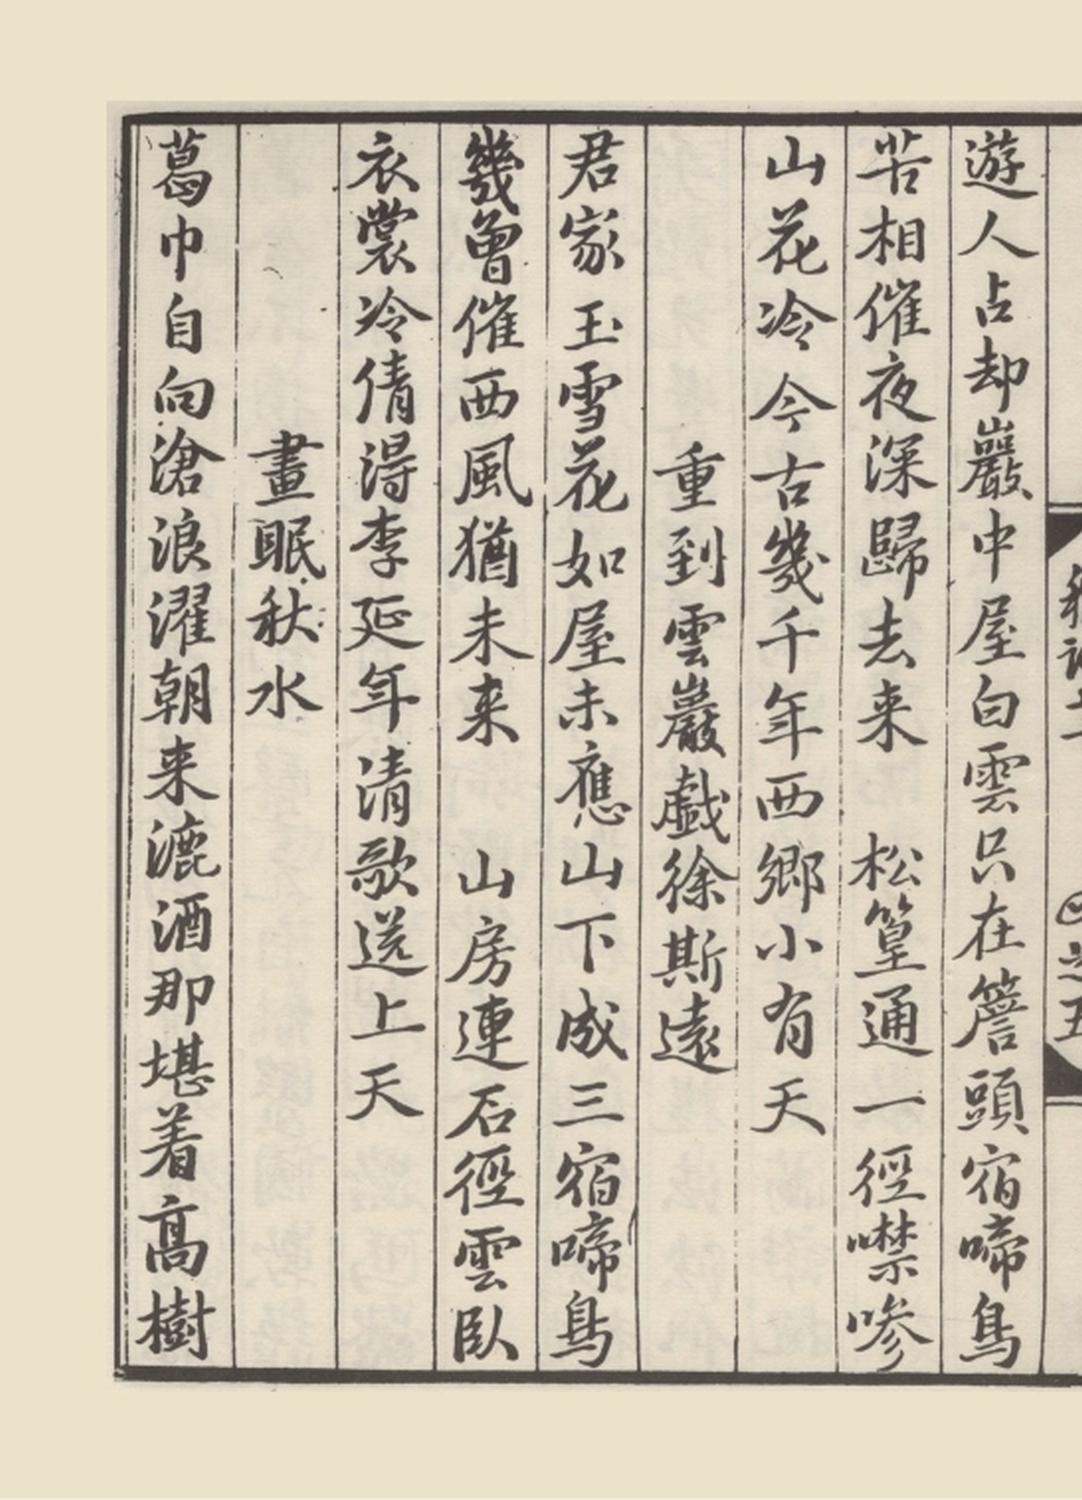 遊人占却巖中屋白雲只在簷頭宿啼鳥
苦相催夜深歸去来　松篁通一徑噤嘇
山花冷今古幾千年西鄉小有天
重到雲巖戯徐斯遠
君家玉雪花如屋未應山下成三宿啼鳥
幾曾催西風猶未来　山房連石徑雲臥
衣裳冷倩淂李延年清歌送上天
晝眠秋水
葛巾自向滄浪濯朝来漉酒那堪着高樹